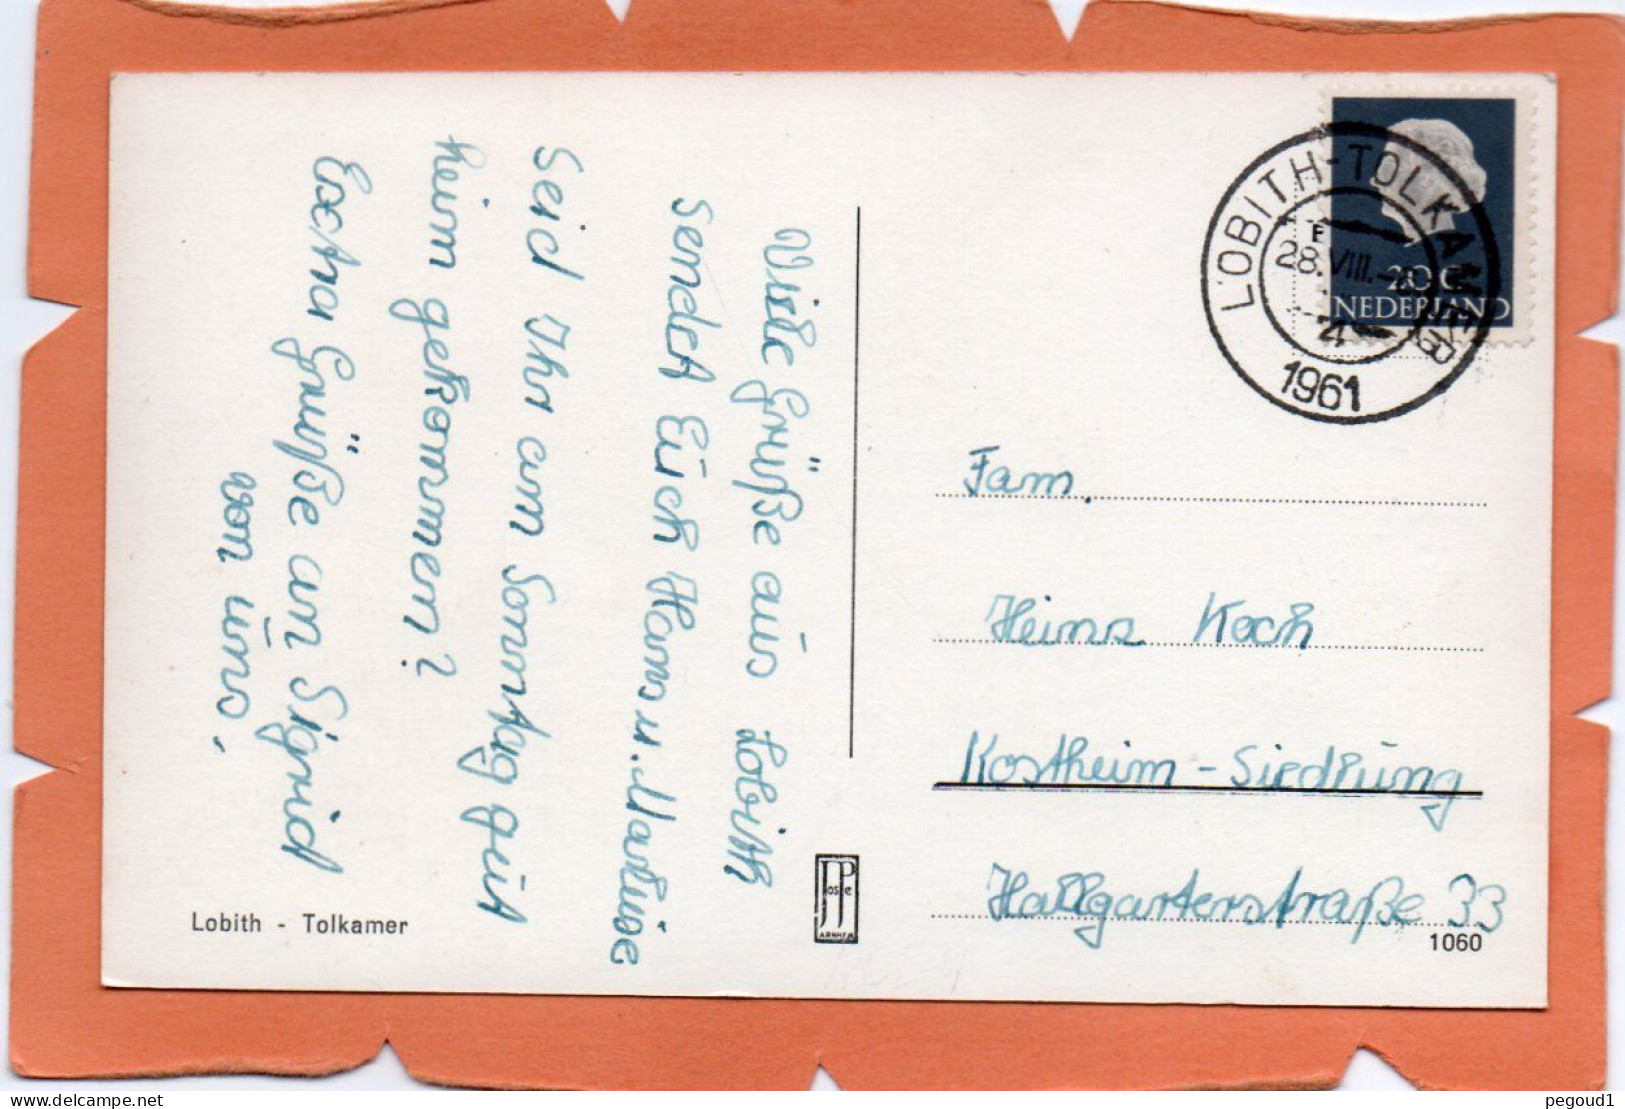 Viele Grüße aus Lobith
sendet Euch Hans u. Marlise
Seid Ihr am Sonntag gut
heim gekommen?
Extra Grüße an Sigrid
von uns.
Lobith - Tolkamer
LOBITH-TOLKAMER
28.VIII.
1961
20 C
NEDERLAND
Fam.
Heinz Koch
Kostheim - Siedlung
Hallgarterstraße 33
1060
JosPe
ARNHEM
delcampe.net
pegoud1